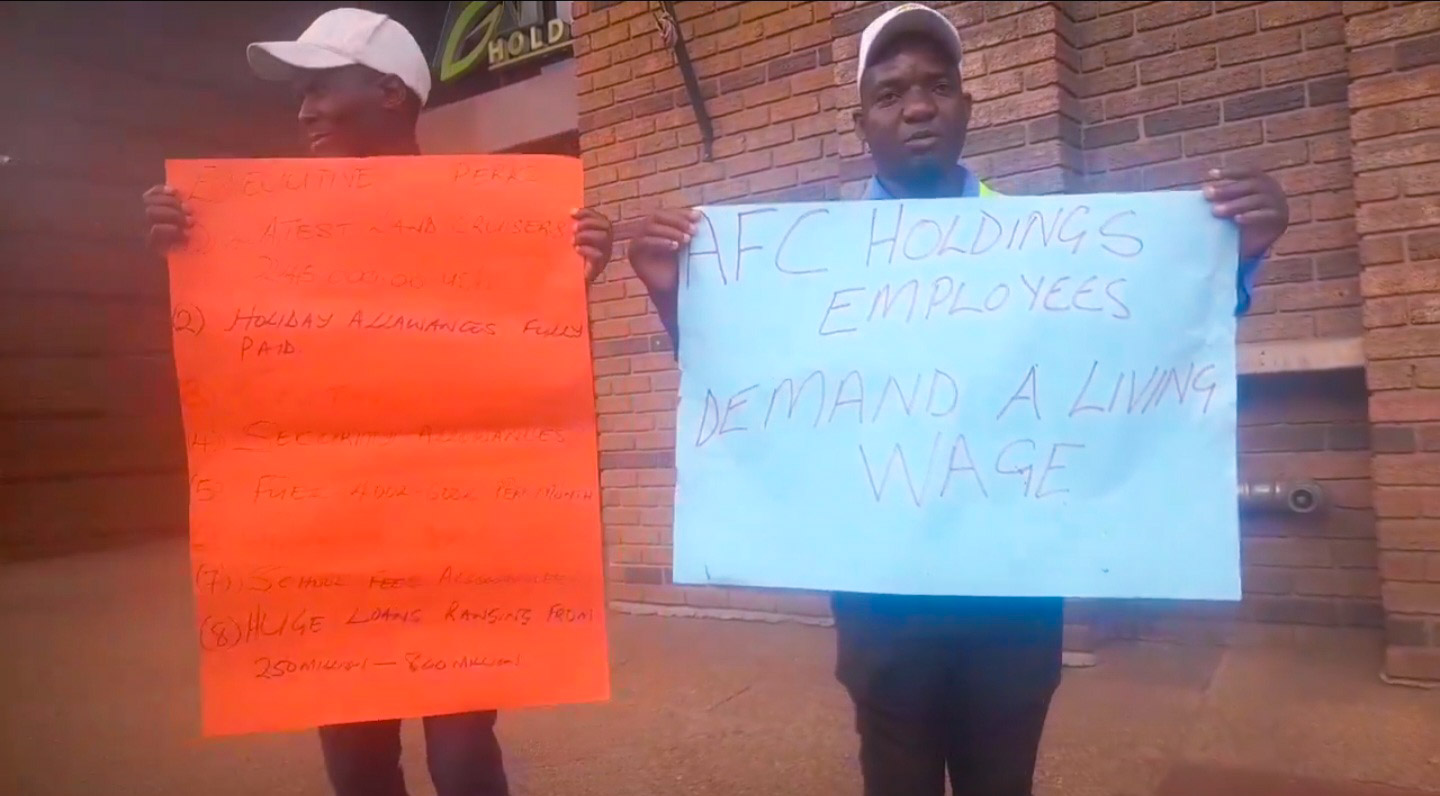 HOLD
EXECUTIVE PERKS
LATEST LAND CRUISERS
(2) HOLIDAY ALLAWANCES FULLY
PAID
4) SECURITY ALLOWANCES
5 FUEL PER MONTH
(7) SCHOOL FEES
(8) HUGE LOANS RANGING FROM
250 MILLION – 800 MILLION
AFC HOLDINGS
EMPLOYEES
DEMAND A LIVING
WAGE